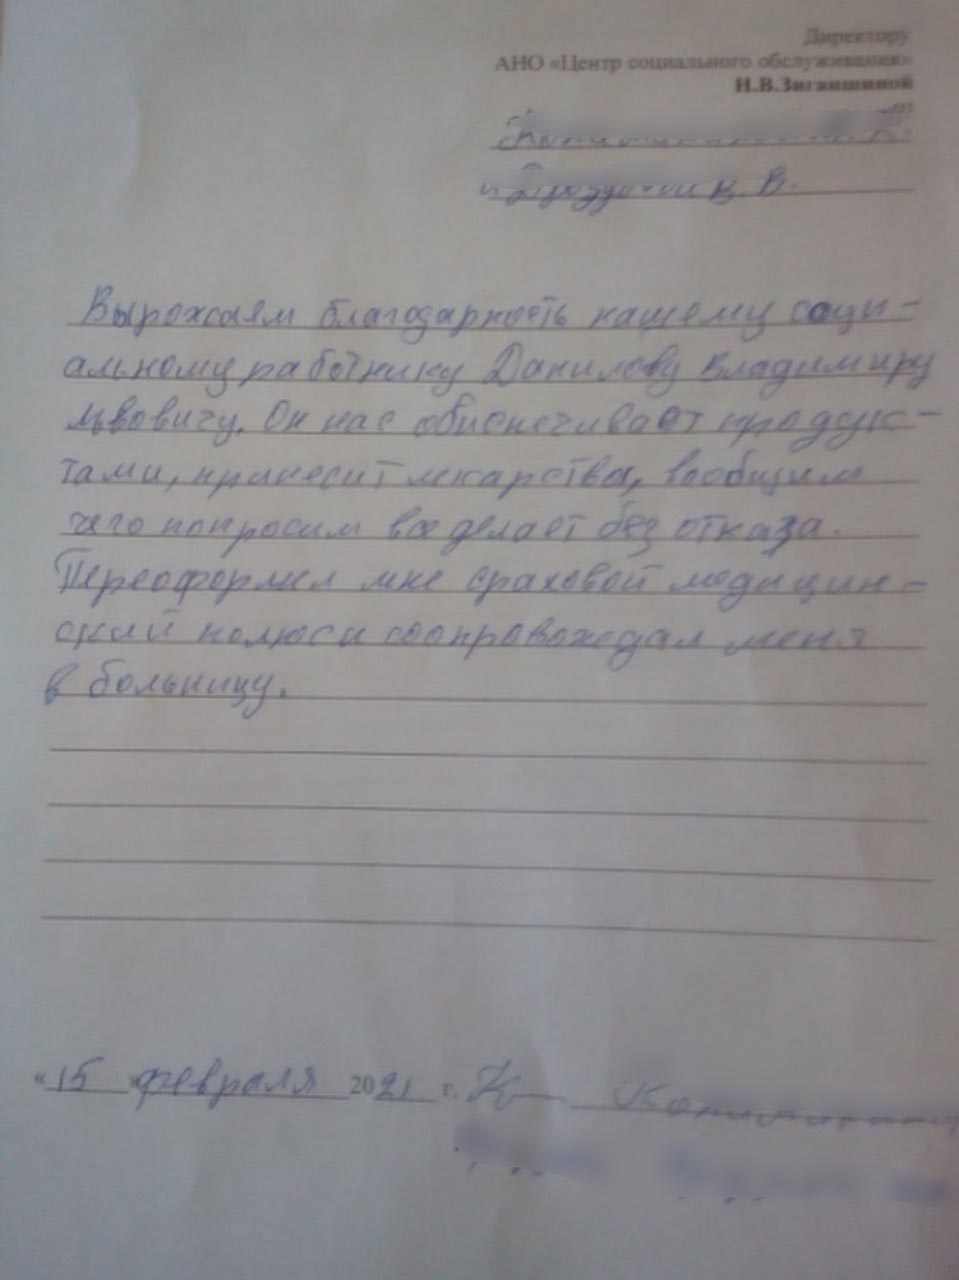 Директору
АНО «Центр социального обслуживания»
Н.В.Зиганшиной
от
В. В.
Вырожаем благодарность нашему соци-
альному работнику Данилову Владимиру
Львовичу. Он нас обиспечивает продук-
тами, приносит лекарства, вообщим
чего попросим все делает без отказа.
Переоформил мне сраховой медицин-
ский полюс и соопровождал меня
в больницу.
«15 » февраля 2021 г.